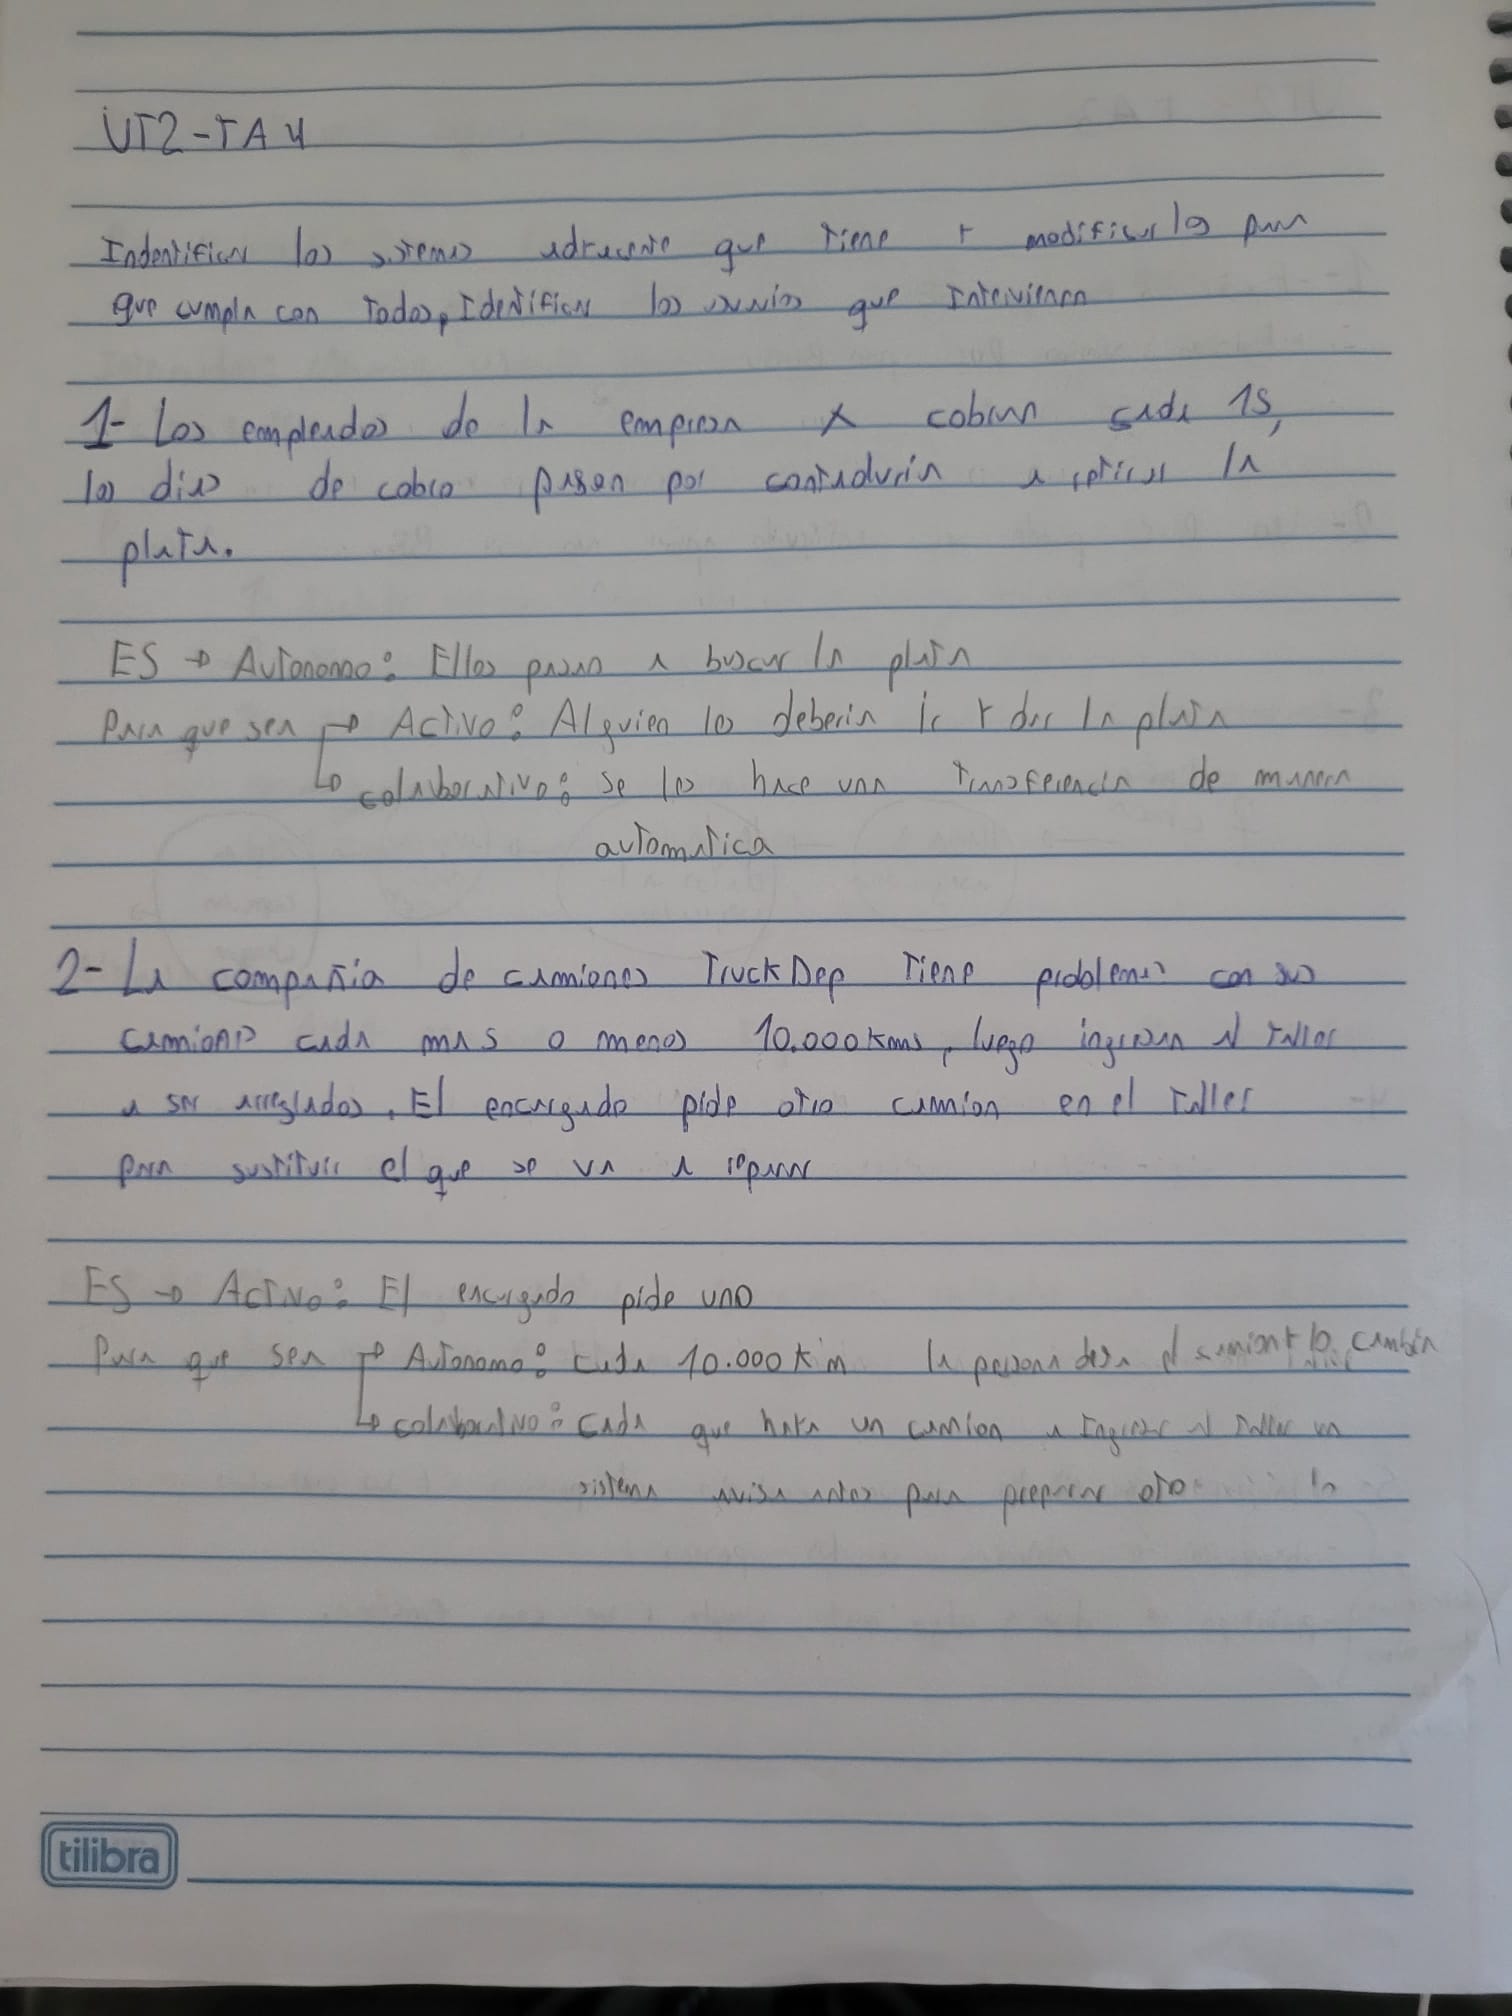 UT2-TA4
Indentificar los sistemas adyacente que tiene y modificarlos para
que cumpla con todos, Identificar los que intervienen
1- Los empleados de la empresa X cobran cada 15,
los dias de cobro pasan por contaduria a retirar la
plata.
ES → Autonomo: Ellos pasan a buscar la plata
Para que sea → Activo: Alguien les deberia ir y dar la plata
↳ colaborativo: se les hace una transferencia de manera
automatica
2- La compañia de camiones TruckDep tiene problemas con sus
camiones cada mas o menos 10.000 kms, luego ingresan al taller
a ser arreglados. El encargado pide otro camion en el taller
para sustituir el que se va a reparar
ES → Activo: El encargado pide uno
Para que sea → Autonomo: cada 10.000 km la persona deja el camion y lo cambia
↳ colaborativo: cada que haya un camion a ingresar al taller un
sistema avisa antes para preparar otro
tilibra